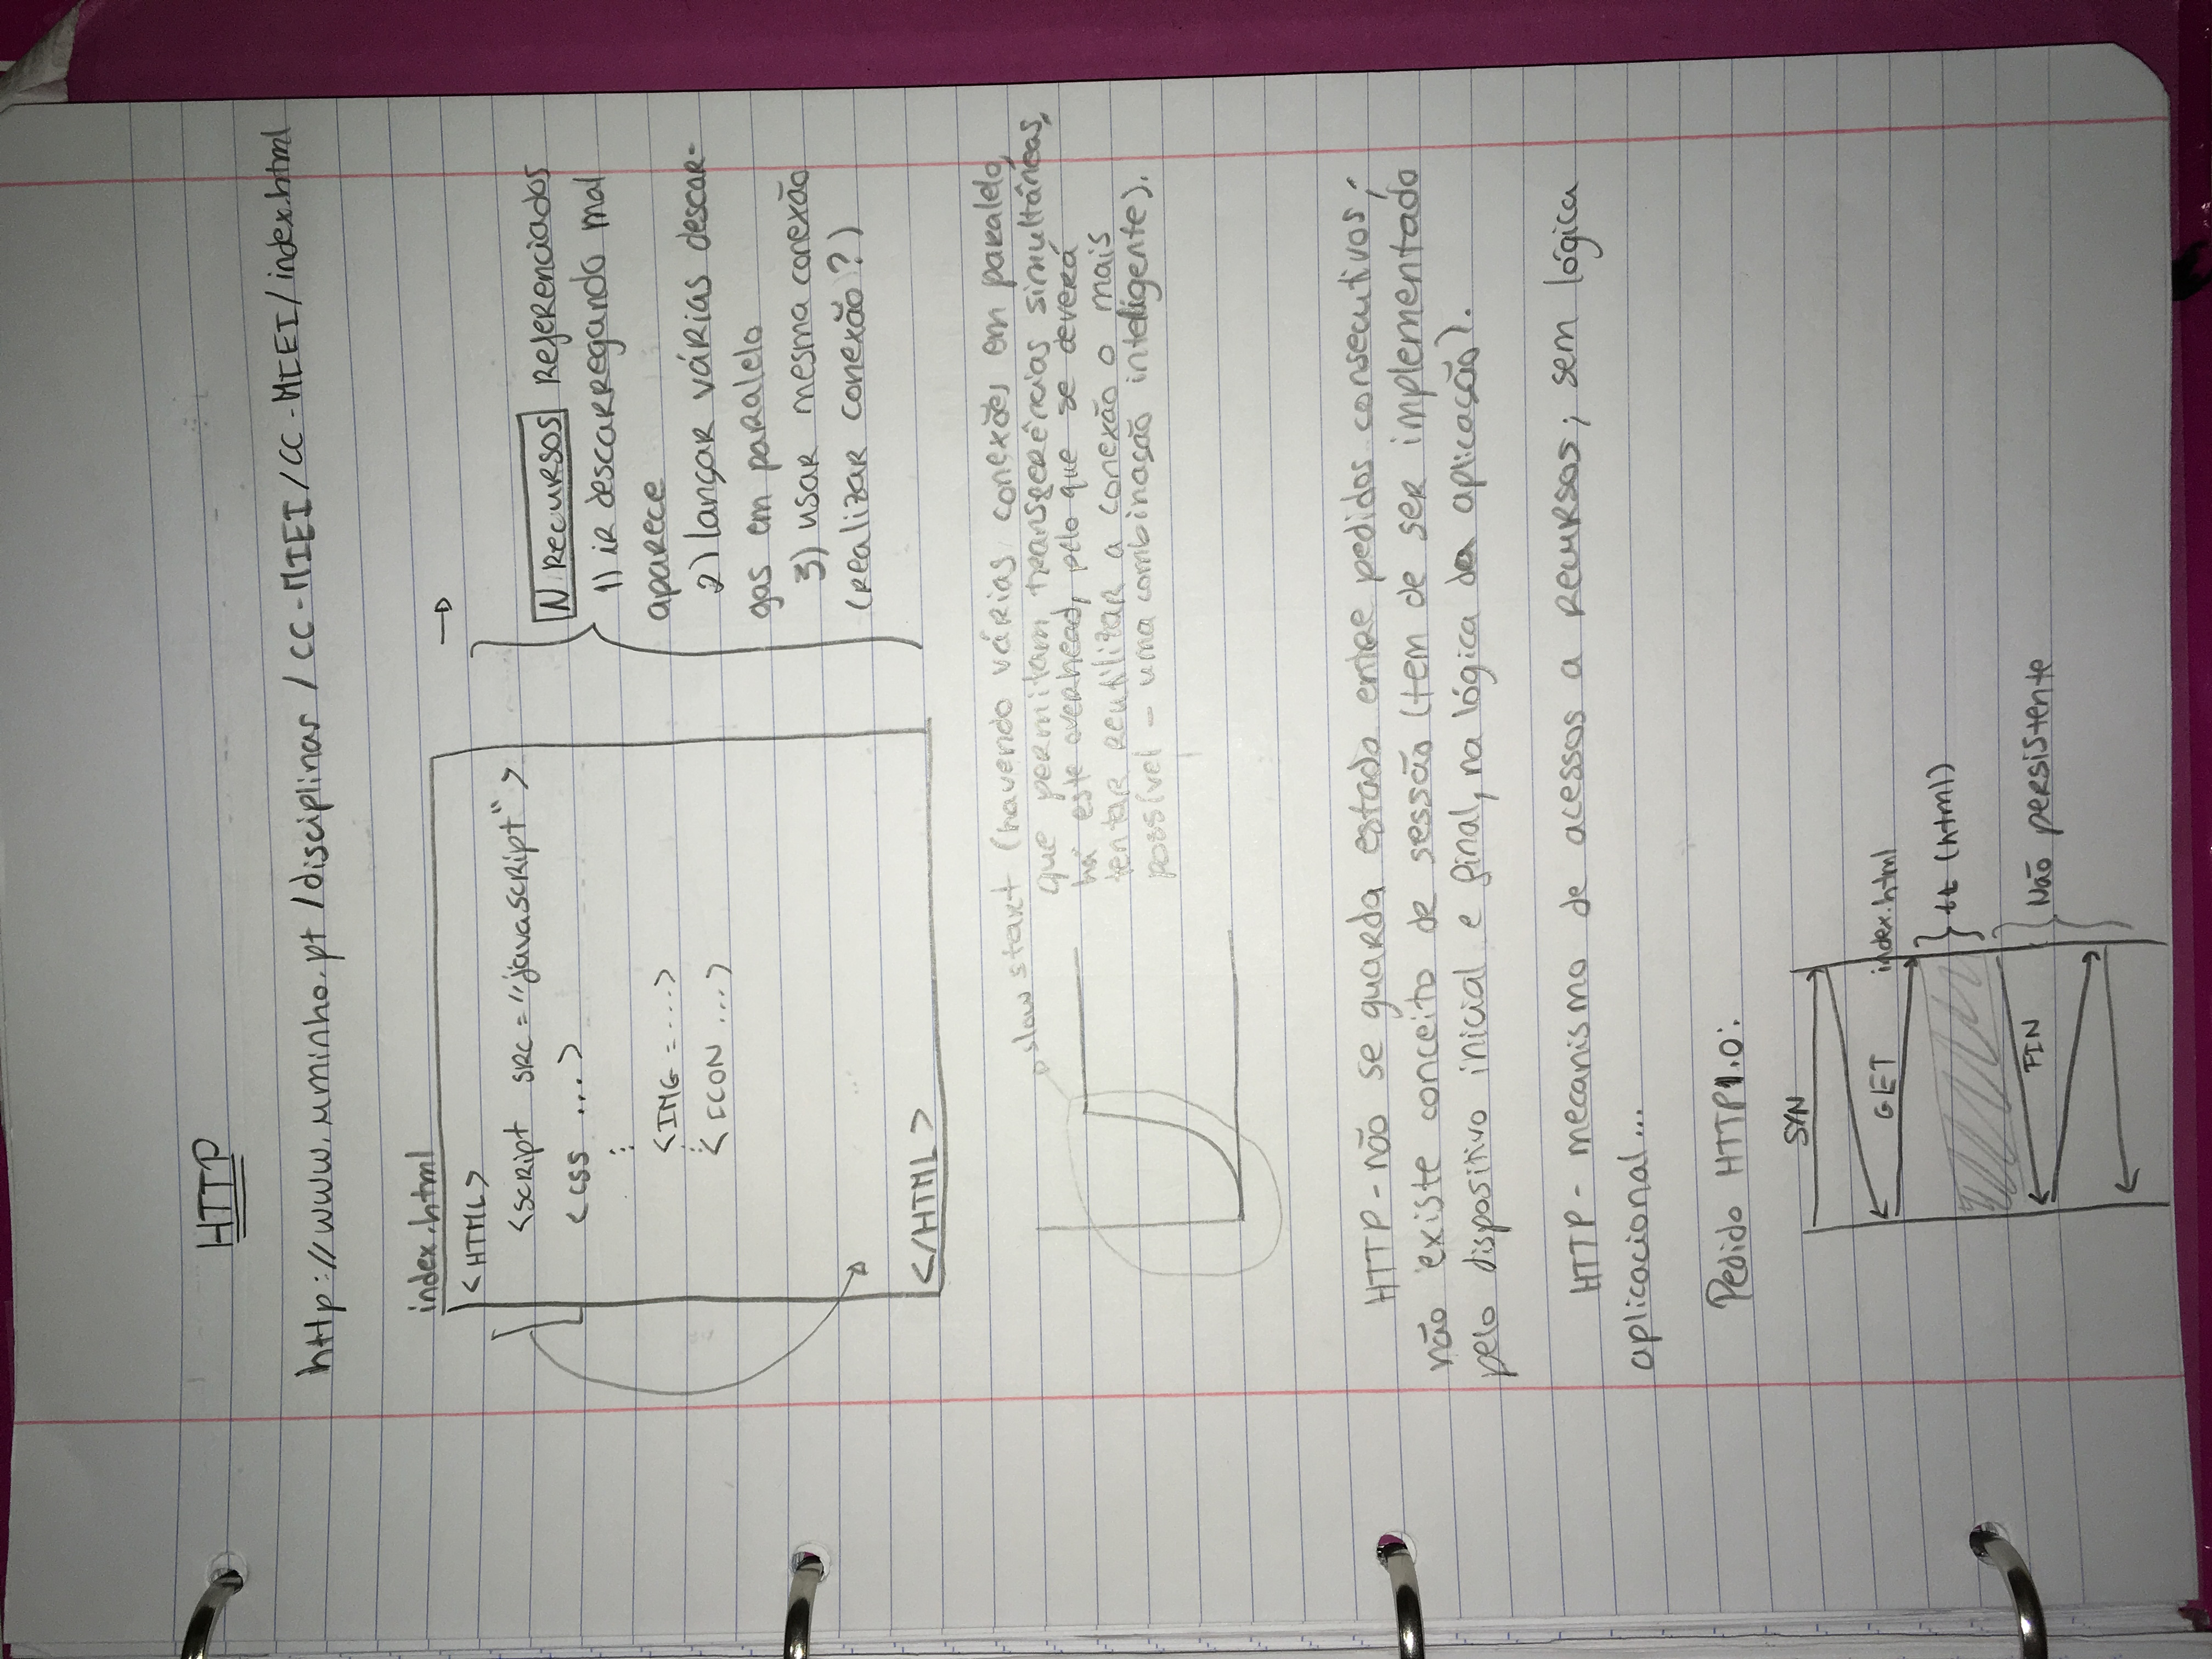 HTTP
http://www.uminho.pt/disciplinas/CC-MIEI/CC-MIEI/index.html
index.html
<HTML>
<script src="javascript">
<css ...>
<IMG = ....>
<ICON ...>
</HTML>
N Recursos Referenciados
1) ir descarregando mal
aparece
2) lançar várias descar-
gas em paralelo
3) usar mesma conexão
(realizar conexão?)
slow start (havendo várias conexões em paralelo,
que permitam transferências simultâneas,
há este overhead, pelo que se deverá
tentar reutilizar a conexão o mais
possível - uma combinação inteligente).
HTTP - não se guarda estado entre pedidos consecutivos;
não existe conceito de sessão (tem de ser implementado
pelo dispositivo inicial e final, na lógica da aplicação).
HTTP - mecanismo de acessos a recursos; sem lógica
aplicacional...
Pedido HTTP1.0:
SYN
GET index.html
tt (html)
FIN
Não persistente